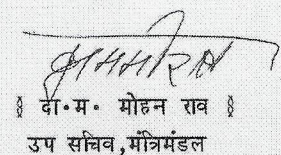 दा॰म॰ मोहन राव
उप सचिव,मंत्रिमंडल